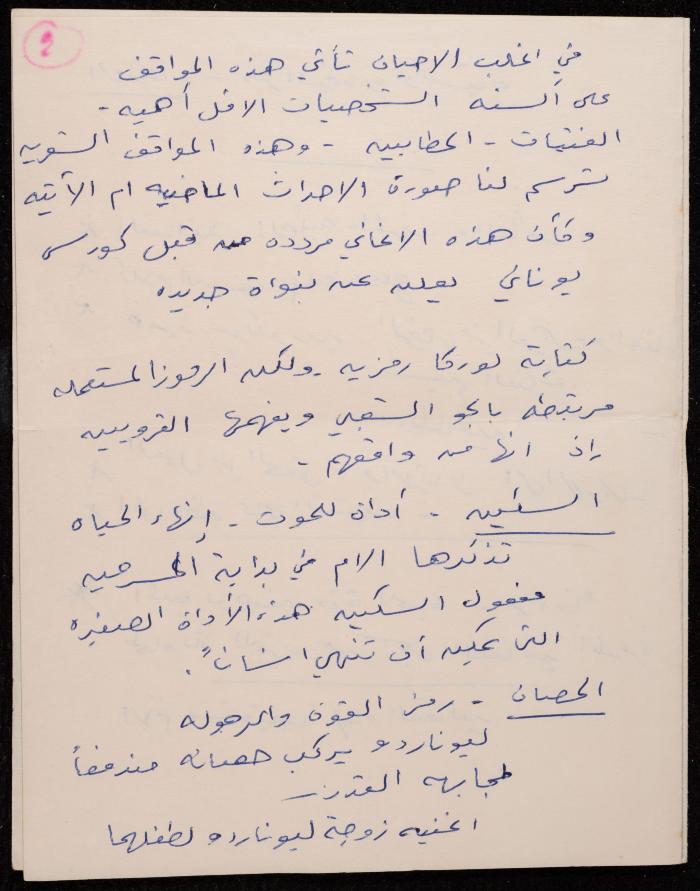 2
في اغلب الاحيان تأتي هذه المواقف
على ألسنه الشخصيات الاقل أهميه -
الفتيات - الحطابيه - وهذه المواقف الشعريه
ترسم لنا صورة الاحداث الماضيه ام الآتيه
وكأن هذه الاغاني مردده من قبل كورس
يوناني يعلن عن بنواة جديده
كتابة لوركا رمزيه - ولكن الرموز المستعمله
مرتبطه بالجو الشعبي ويفهمها القرويين
إذ انها من واقعهم -
السكين - أداة للموت - إنهاء الحياه
تذكرها الام في بداية المسرحيه
مفعول السكين هذه الأداة الصغيره
التي يمكن أن تنهي انساناً .
الحصان - رمز القوة والرجوله
ليوناردو يركب حصانه مندفعاً
لمجابهه القدر
اغنيه زوجة ليوناردو لطفلهما